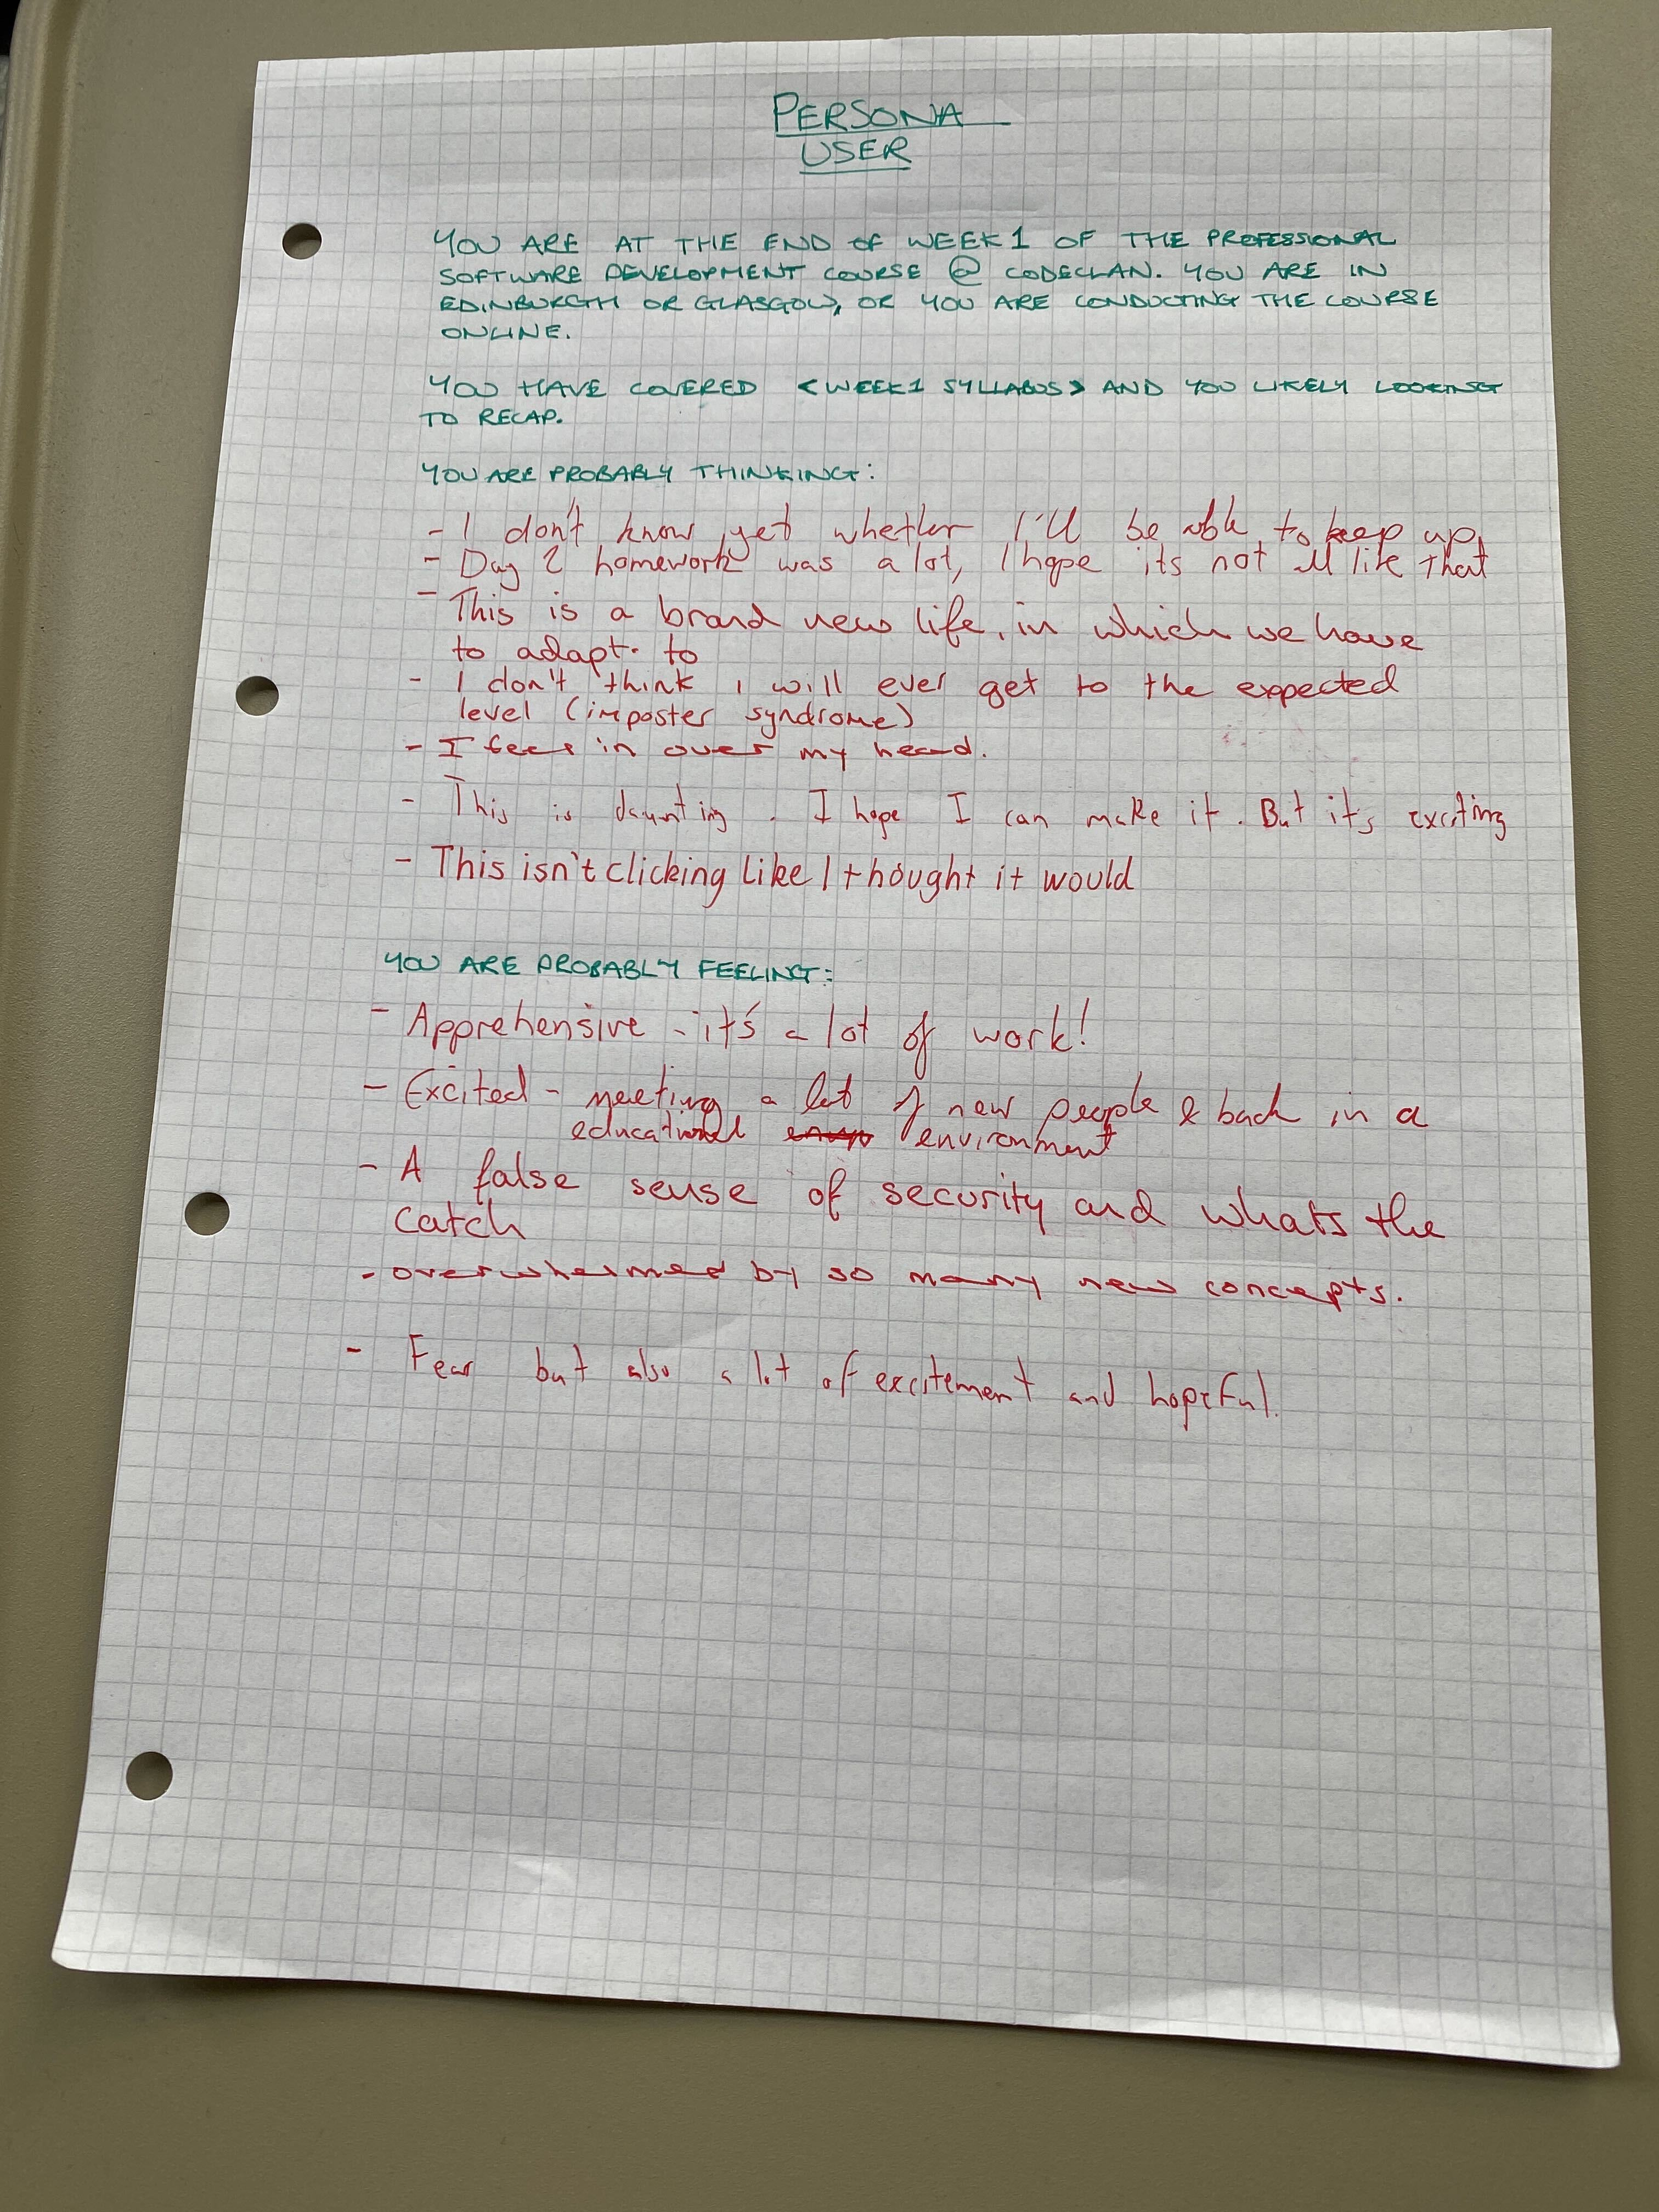 PERSONA
USER
YOU ARE AT THE END OF WEEK 1 OF THE PROFESSIONAL
SOFTWARE DEVELOPMENT COURSE @ CODECLAN. YOU ARE IN
EDINBURGH OR GLASGOW, OR YOU ARE CONDUCTING THE COURSE
ONLINE.
YOU HAVE COVERED <WEEK1 SYLLABUS> AND YOU LIKELY LOOKING
TO RECAP.
YOU ARE PROBABLY THINKING:
- I don't know yet whether I'll be able to keep up.
- Day 2 homework was a lot, I hope its not all like that
- This is a brand new life, in which we have
to adapt. to
- I don't think I will ever get to the expected
level (imposter syndrome)
- I feel in over my head.
- This is daunting. I hope I can make it. But its exciting
- This isn't clicking like I thought it would
YOU ARE PROBABLY FEELING:
- Apprehensive - it's a lot of work!
- Excited - meeting a lot of new people & back in a
educational environment
- A false sense of security and whats the
catch
- overwhelmed by so many new concepts.
- Fear but also a lot of excitement and hopeful.